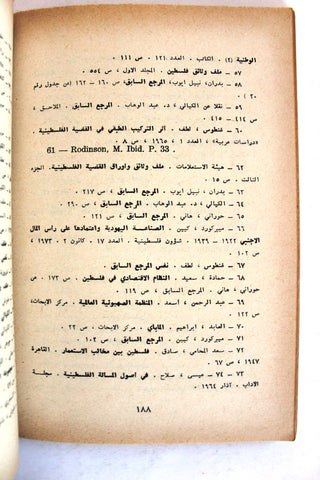 الوطنية (٢) . الكاتب . العدد ١٢١ . ص ١١١ .
٥٧ — ملف وثائق فلسطين . المجلد الاول . ص ٥٥٤ .
٥٨ — بدران ، نبيل ايوب . المرجع السابق ، ص ١٦٠ — ١٦٢ (من جدول رقم
٢٠ ) .
٥٩ — نقلا عن الكيالي ، د. عبد الوهاب . المرجع السابق . الملاحق ،
ص ٤١٤ — ٤١٥ .
٦٠ — غنطوس ، لطف . أثر التركيب الطبقي في القضية الفلسطينية .
«دراسات عربية» ، العدد ١ ، ١٩٦٥ ، ص ٨ .
61 — Rodinson, M. Ibid. P. 33 .
٦٢ — هيئة الاستعلامات . ملف وثائق واوراق القضية الفلسطينية . الجزء
الثالث . ص
٦٣ — بدران ، نبيل ايوب . المرجع السابق ، ص ٢١٧ .
٦٤ — الكيالي ، د. عبد الوهاب . المرجع السابق ، ص ٢٦٠ .
٦٥ — حوراني ، هاني . المرجع السابق . ص ١٢١ .
٦٦ — ميبركورد ، كيين . الصناعة اليهودية واعتمادها على راس المال
الاجنبي ١٩٢٢ — ١٩٣٩ . شؤون فلسطينية . العدد ١٧ . كانون ٢ ، ١٩٧٣ .
ص ١٠٢ .
٦٧ — غنطوس ، لطف . نفس المرجع السابق .
٦٨ — حمادة ، سعيد . النظام الاقتصادي في فلسطين . ص ١٧٣ عن
حوراني ، هاني . المرجع السابق ، ص ١١٩ .
٦٩ — عبد الرحمن ، اسعد . المنظمة الصهيونية العالمية . مركز الابحاث .
ص ١٢٢ .
٧٠ — العابد ، ابراهيم . الماباي . مركز الابحاث . ص ٢٢ .
٧١ — ميبركورد ، كيين . المرجع السابق . ص ١٠٢ .
٧٢ — سعد المحامي ، صادق . فلسطين بين مخالب الاستعمار . القاهرة
١٩٤٧ ، ص ٦٧ .
٧٣ — ٧٤ — عيسى ، صلاح . في اصول المسالة الفلسطينية . مجلة
الاداب . آذار ١٩٦٤ .
١٨٨